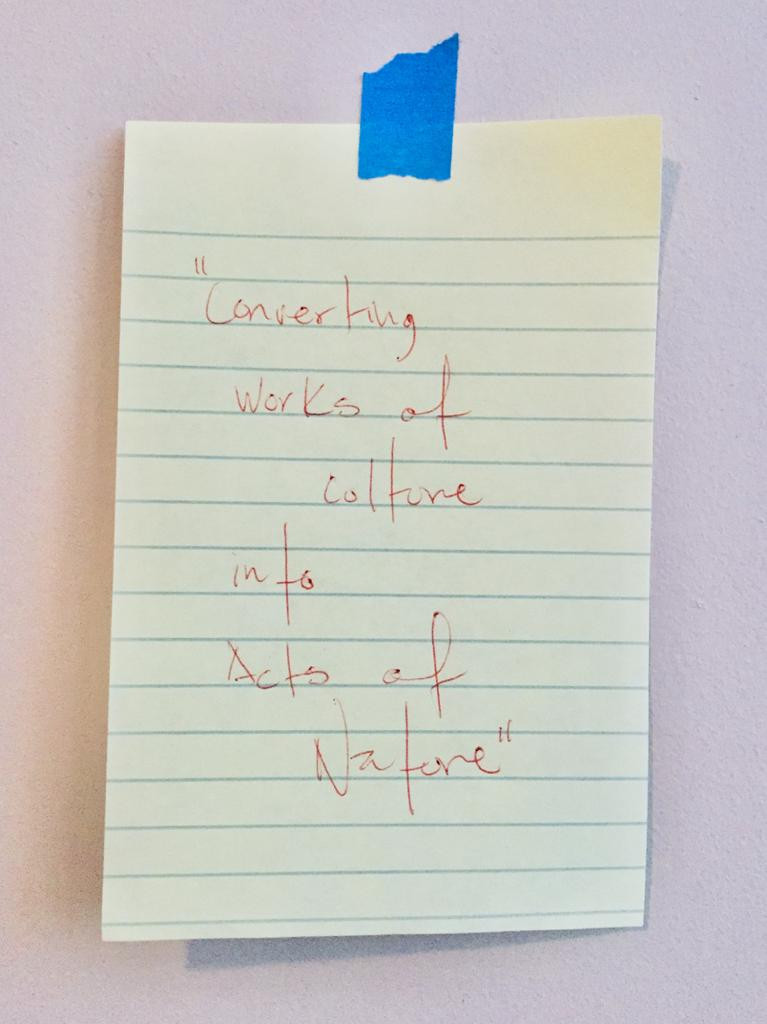 "Converting
Works of
Culture
into
Acts of
Nature"